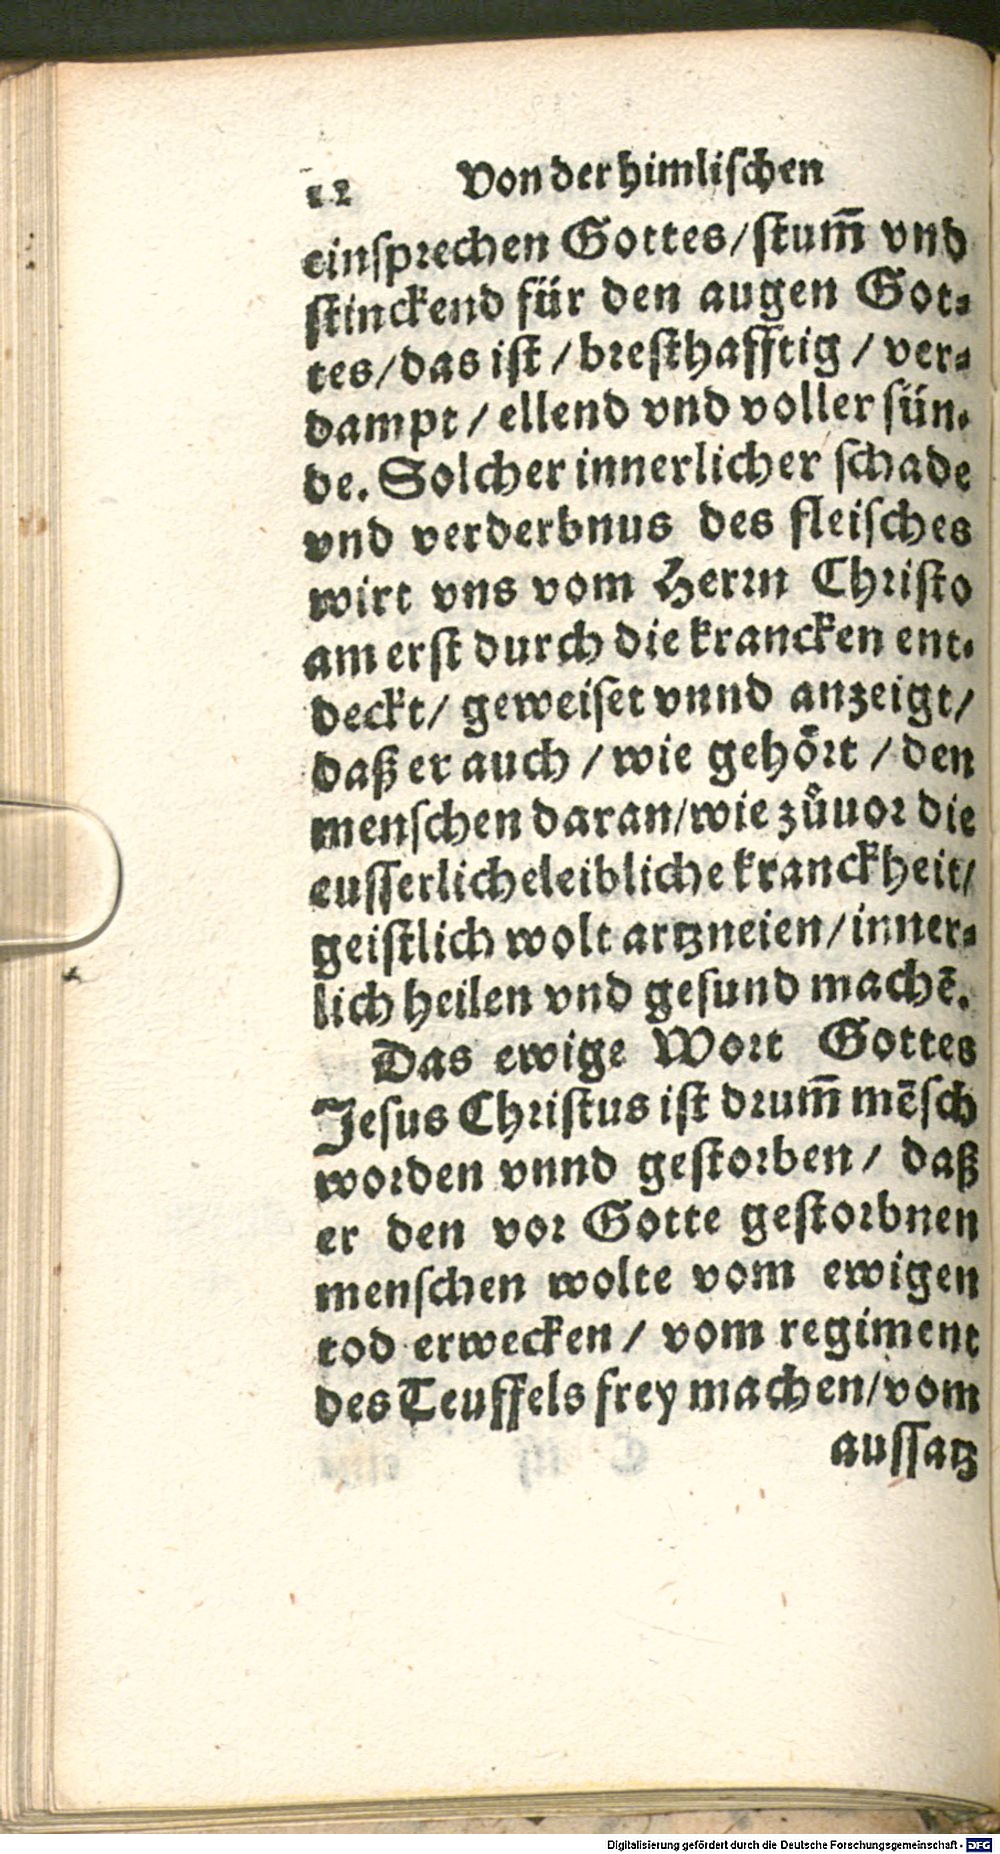 12 Von der himlischen
einsprechen Gottes/stum̃ vnd
stinckend für den augen Got-
tes/das ist/bresthafftig/ver-
dampt/ellend vnd voller sün-
de. Solcher innerlicher schade
vnd verderbnus des fleisches
wirt vns vom Herrn Christo
am erst durch die krancken ent-
deckt/geweiset vnnd anzeigt/
daß er auch/wie gehört/den
menschen daran/wie zůuor die
eusserliche leibliche kranckheit/
geistlich wolt artzneien/inner-
lich heilen vnd gesund machē.
Das ewige Wort Gottes
Jesus Christus ist drum̃ mēsch
worden vnnd gestorben/ daß
er den vor Gotte gestorbnen
menschen wolte vom ewigen
tod erwecken/ vom regiment
des Teuffels frey machen/vom
aussatz
Digitalisierung gefördert durch die Deutsche Forschungsgemeinschaft - DFG